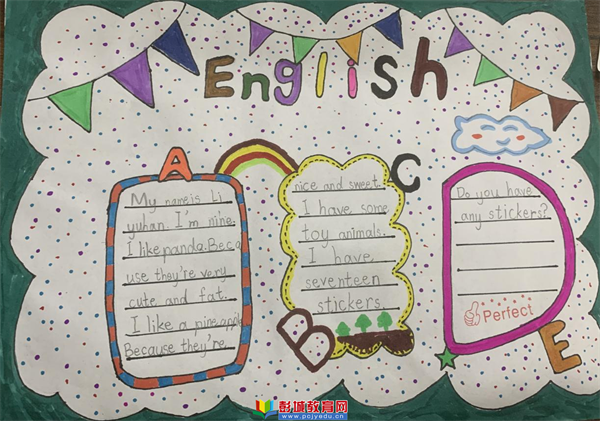 English
A
My name is Li
yuhan. I'm nine.
I like panda. Beca
use they're very
cute and fat.
I like a pineapple
Because they're
B
C
nice and sweet.
I have some
toy animals.
I have
seventeen
stickers
Do you have
any stickers?
Perfect
E
彭城教育网
www.pcjyedu.cn